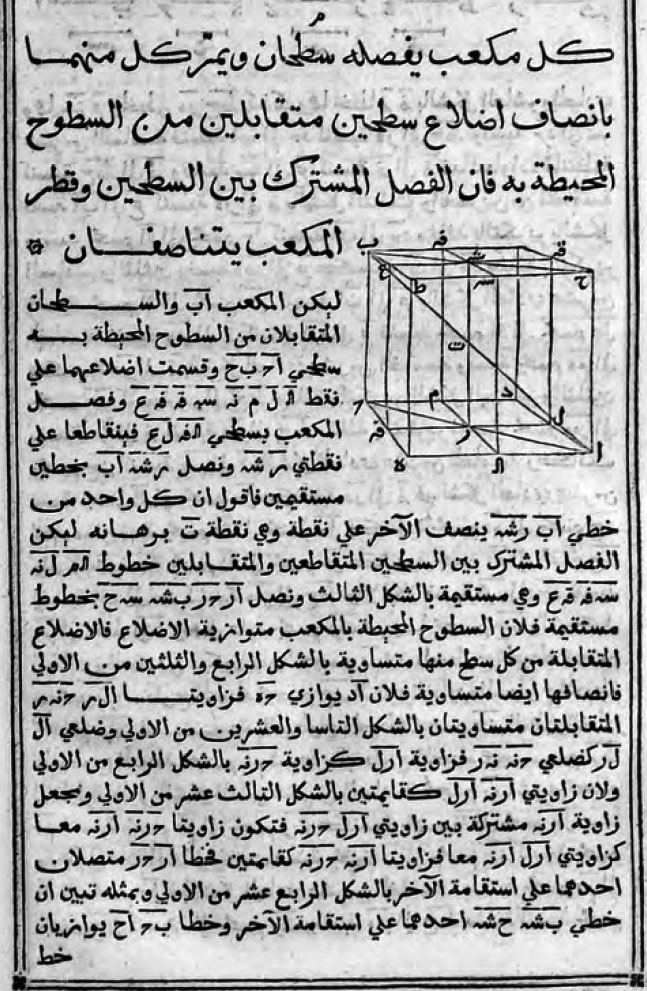 كل مكعب يفصله سطحان ويمر كل منهما
بانصاف اضلاع سطحين متقابلين من السطوح
المحيطة به فان الفصل المشترك بين السطحين وقطر
المكعب يتناصفان
ب فه قه
ع ث
ط سه ح
ت
ح م د ل
فه ر ا
ه ال
ليكن المكعب اب والسطحان
المتقابلان من السطوح المحيطة به
سطحي اح بح وقسمت اضلاعهما علي
نقط ال ل م نه سه فه قه ع وفصل
المكعب بسطحي فيتقاطعا علي
نقطتي ر شه ونصل رشه اب بخطين
مستقيمين فاقول ان كل واحد من
خطي اب رشه ينصف الآخر علي نقطة وهي نقطة ت برهانه ليكن
الفصل المشترك بين السطحين المتقاطعين والمتقابلين خطوط الم ل نه
سه فه قه ع وهي مستقيمة بالشكل الثالث ونصل ار حر بشه شه ح بخطوط
مستقيمة فلان السطوح المحيطة بالمكعب متوازية الاضلاع فالاضلاع
المتقابلة من كل سطح منها متساوية بالشكل الرابع والثلثين من الاولي
فانصافها ايضا متساوية فلان اد يوازي حه فزاويتا ال ر حنه ر
المتقابلتان متساويتان بالشكل التاسا والعشرين من الاولي وضلعي ال
ل ر كضلعي حنه نه ر فزاوية ارل كزاوية حرنه بالشكل الرابع من الاولي
ولان زاويتي ارنه ارل كقايمتين بالشكل الثالث عشر من الاولي ونجعل
زاوية ارنه مشتركة بين زاويتي ارل حرنه فتكون زاويتا حرنه ارنه معا
كزاويتي ارل ارنه معا فزاويتا ارنه حرنه كقايمتين فخطا ار حر متصلان
احدهما علي استقامة الآخر بالشكل الرابع عشر من الاولي وبمثله تبين ان
خطي بشه حشه احدهما علي استقامة الآخر وخطا بح اح يوازيان
خط